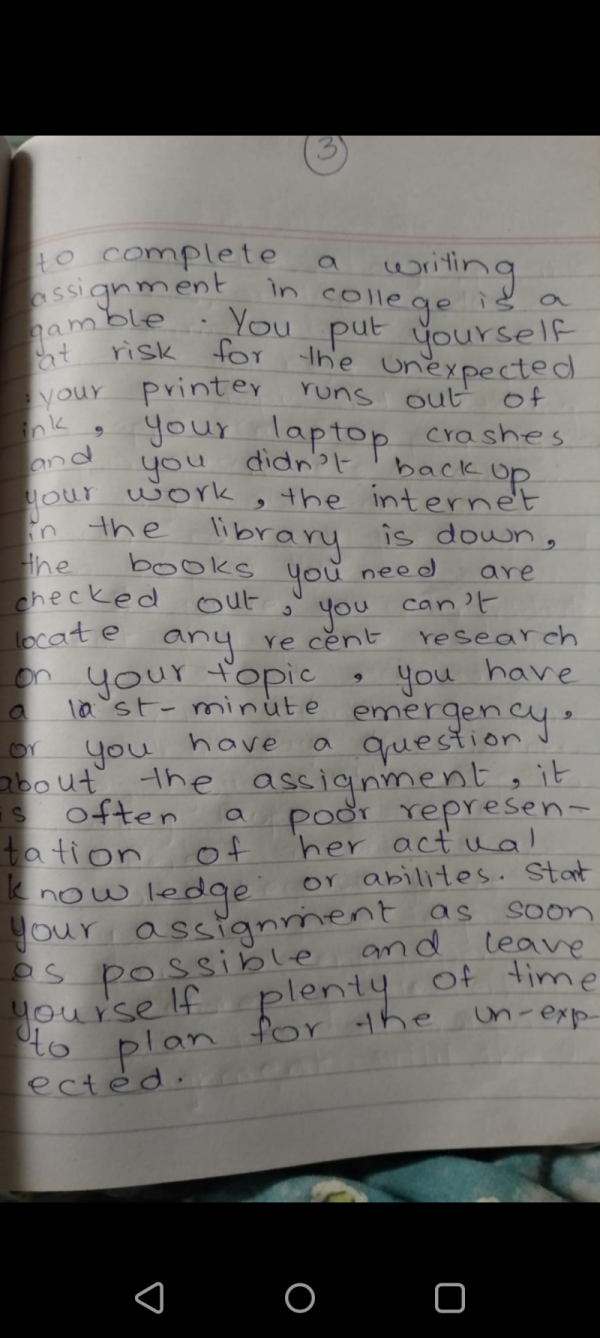 3
to complete a writing
assignment in college is a
gamble. You put yourself
at risk for the unexpected
: your printer runs out of
ink, your laptop crashes
and you didn't back up
your work, the internet
in the library is down,
the books you need are
checked out, you can't
locate any recent research
on your topic, you have
a last-minute emergency,
or you have a question
about the assignment, it
is often a poor represen-
tation of her actual
knowledge or abilites. Start
your assignment as soon
as possible and leave
yourself plenty of time
to plan for the un-exp-
ected.